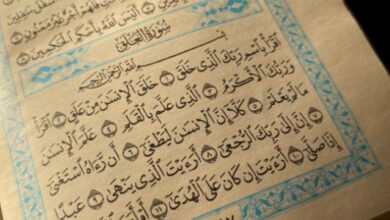 فَلَهُمْ أَجْرٌ غَيْرُ مَمْنُونٍ
أَلَيْسَ ٱللَّهُ بِأَحْكَمِ ٱلْحَٰكِمِينَ
سُورَةُ ٱلْعَلَقِ
بِسْمِ ٱللَّهِ ٱلرَّحْمَٰنِ ٱلرَّحِيمِ
ٱقْرَأْ بِٱسْمِ رَبِّكَ ٱلَّذِى خَلَقَ ١ خَلَقَ ٱلْإِنسَٰنَ مِنْ عَلَقٍ ٢ ٱقْرَأْ
وَرَبُّكَ ٱلْأَكْرَمُ ٣ ٱلَّذِى عَلَّمَ بِٱلْقَلَمِ ٤ عَلَّمَ ٱلْإِنسَٰنَ
مَا لَمْ يَعْلَمْ ٥ كَلَّآ إِنَّ ٱلْإِنسَٰنَ لَيَطْغَىٰٓ ٦ أَن رَّءَاهُ ٱسْتَغْنَىٰٓ
٧ إِنَّ إِلَىٰ رَبِّكَ ٱلرُّجْعَىٰٓ ٨ أَرَءَيْتَ ٱلَّذِى يَنْهَىٰ ٩ عَبْدًا
إِذَا صَلَّىٰٓ ١٠ أَرَءَيْتَ إِن كَانَ عَلَى ٱلْهُدَىٰٓ ١١